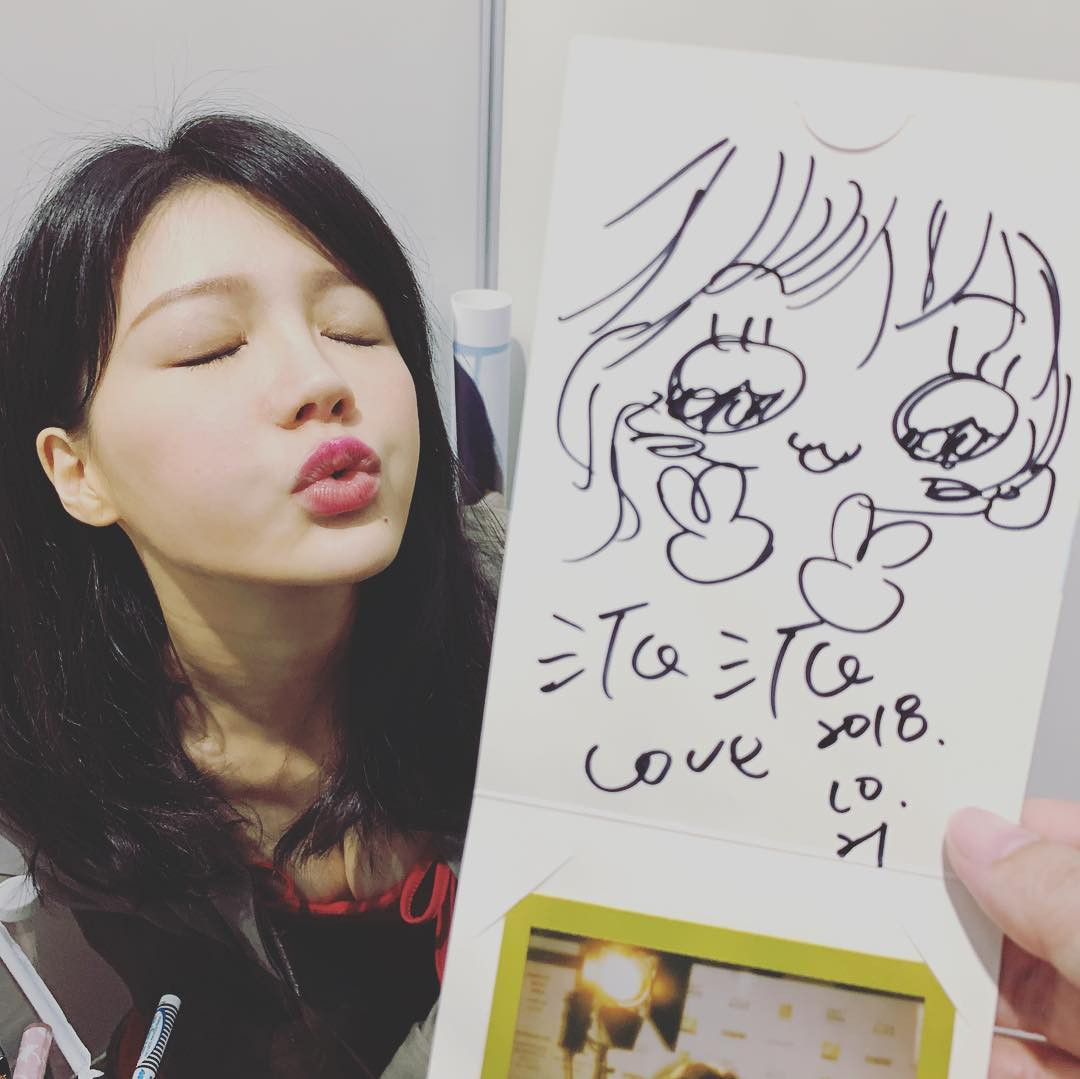 沱沱
Love
2018.
10.
21